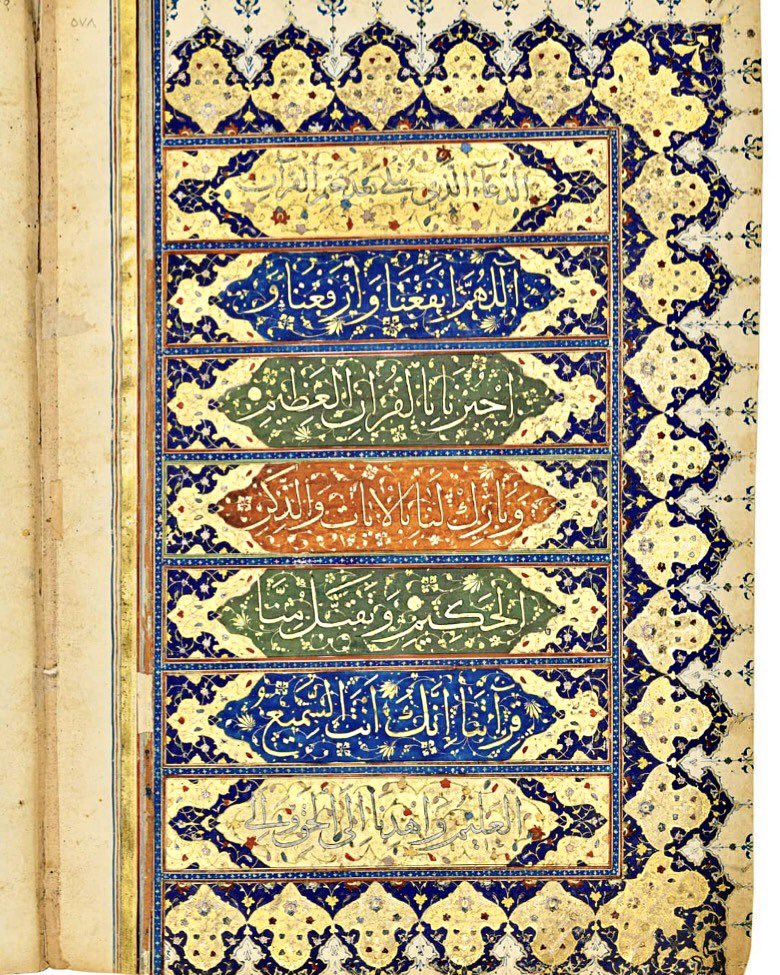 ٥٧٨
الدعاء الذي يتلى بعد ختم القرآن
اَللّٰهُمَّ انْفَعْنَا وَارْفَعْنَا وَ
اجْبُرْنَا بِالْقُرْاٰنِ الْعَظِيْمِ
وَبَارِكْ لَنَا بِالْاٰيَاتِ وَالذِّكْرِ
الْحَكِيْمِ وَتَقَبَّلْ مِنَّا
قِرَاءَتَنَا اِنَّكَ اَنْتَ السَّمِيْعُ
العليم واهدنا الى الحق والى